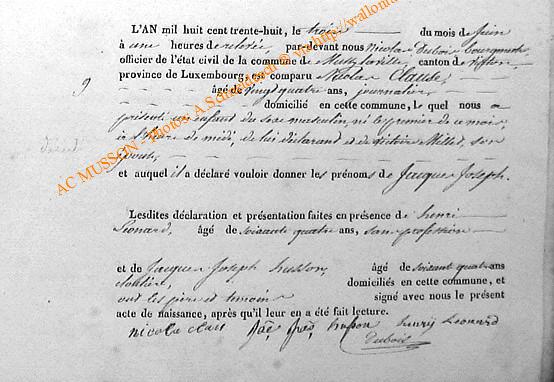 L'AN mil huit cent trente-huit, le trois du mois de Juin
à une heures de relevée, par-devant nous Nicolas Dubois bourgmestre
officier de l'état civil de la commune de Mussy la ville, canton de
province de Luxembourg, est comparu Nicolas Claude,
9
âgé de vingt quatre ans, journalier
domicilié en cette commune, lequel nous a
présenté un enfant du sexe masculin, né le premier de ce mois,
à l'heure de midi, de lui déclarant et de Millet, son
épouse,
et auquel il a déclaré vouloir donner les prénoms de Jacques Joseph.
Lesdites déclaration et présentation faites en présence de henri
Léonard, âgé de soixante quatre ans, sans profession
et de Jacques Joseph husson, âgé de soixant quatre ans
cloutier, domiciliés en cette commune, et
ont les père et témoins signé avec nous le présent
acte de naissance, après qu'il leur en a été fait lecture.
nicolas claude husson henry Leonard
Dubois
AC MUSSON - Photos: A.Schandbach © via http://wallonia